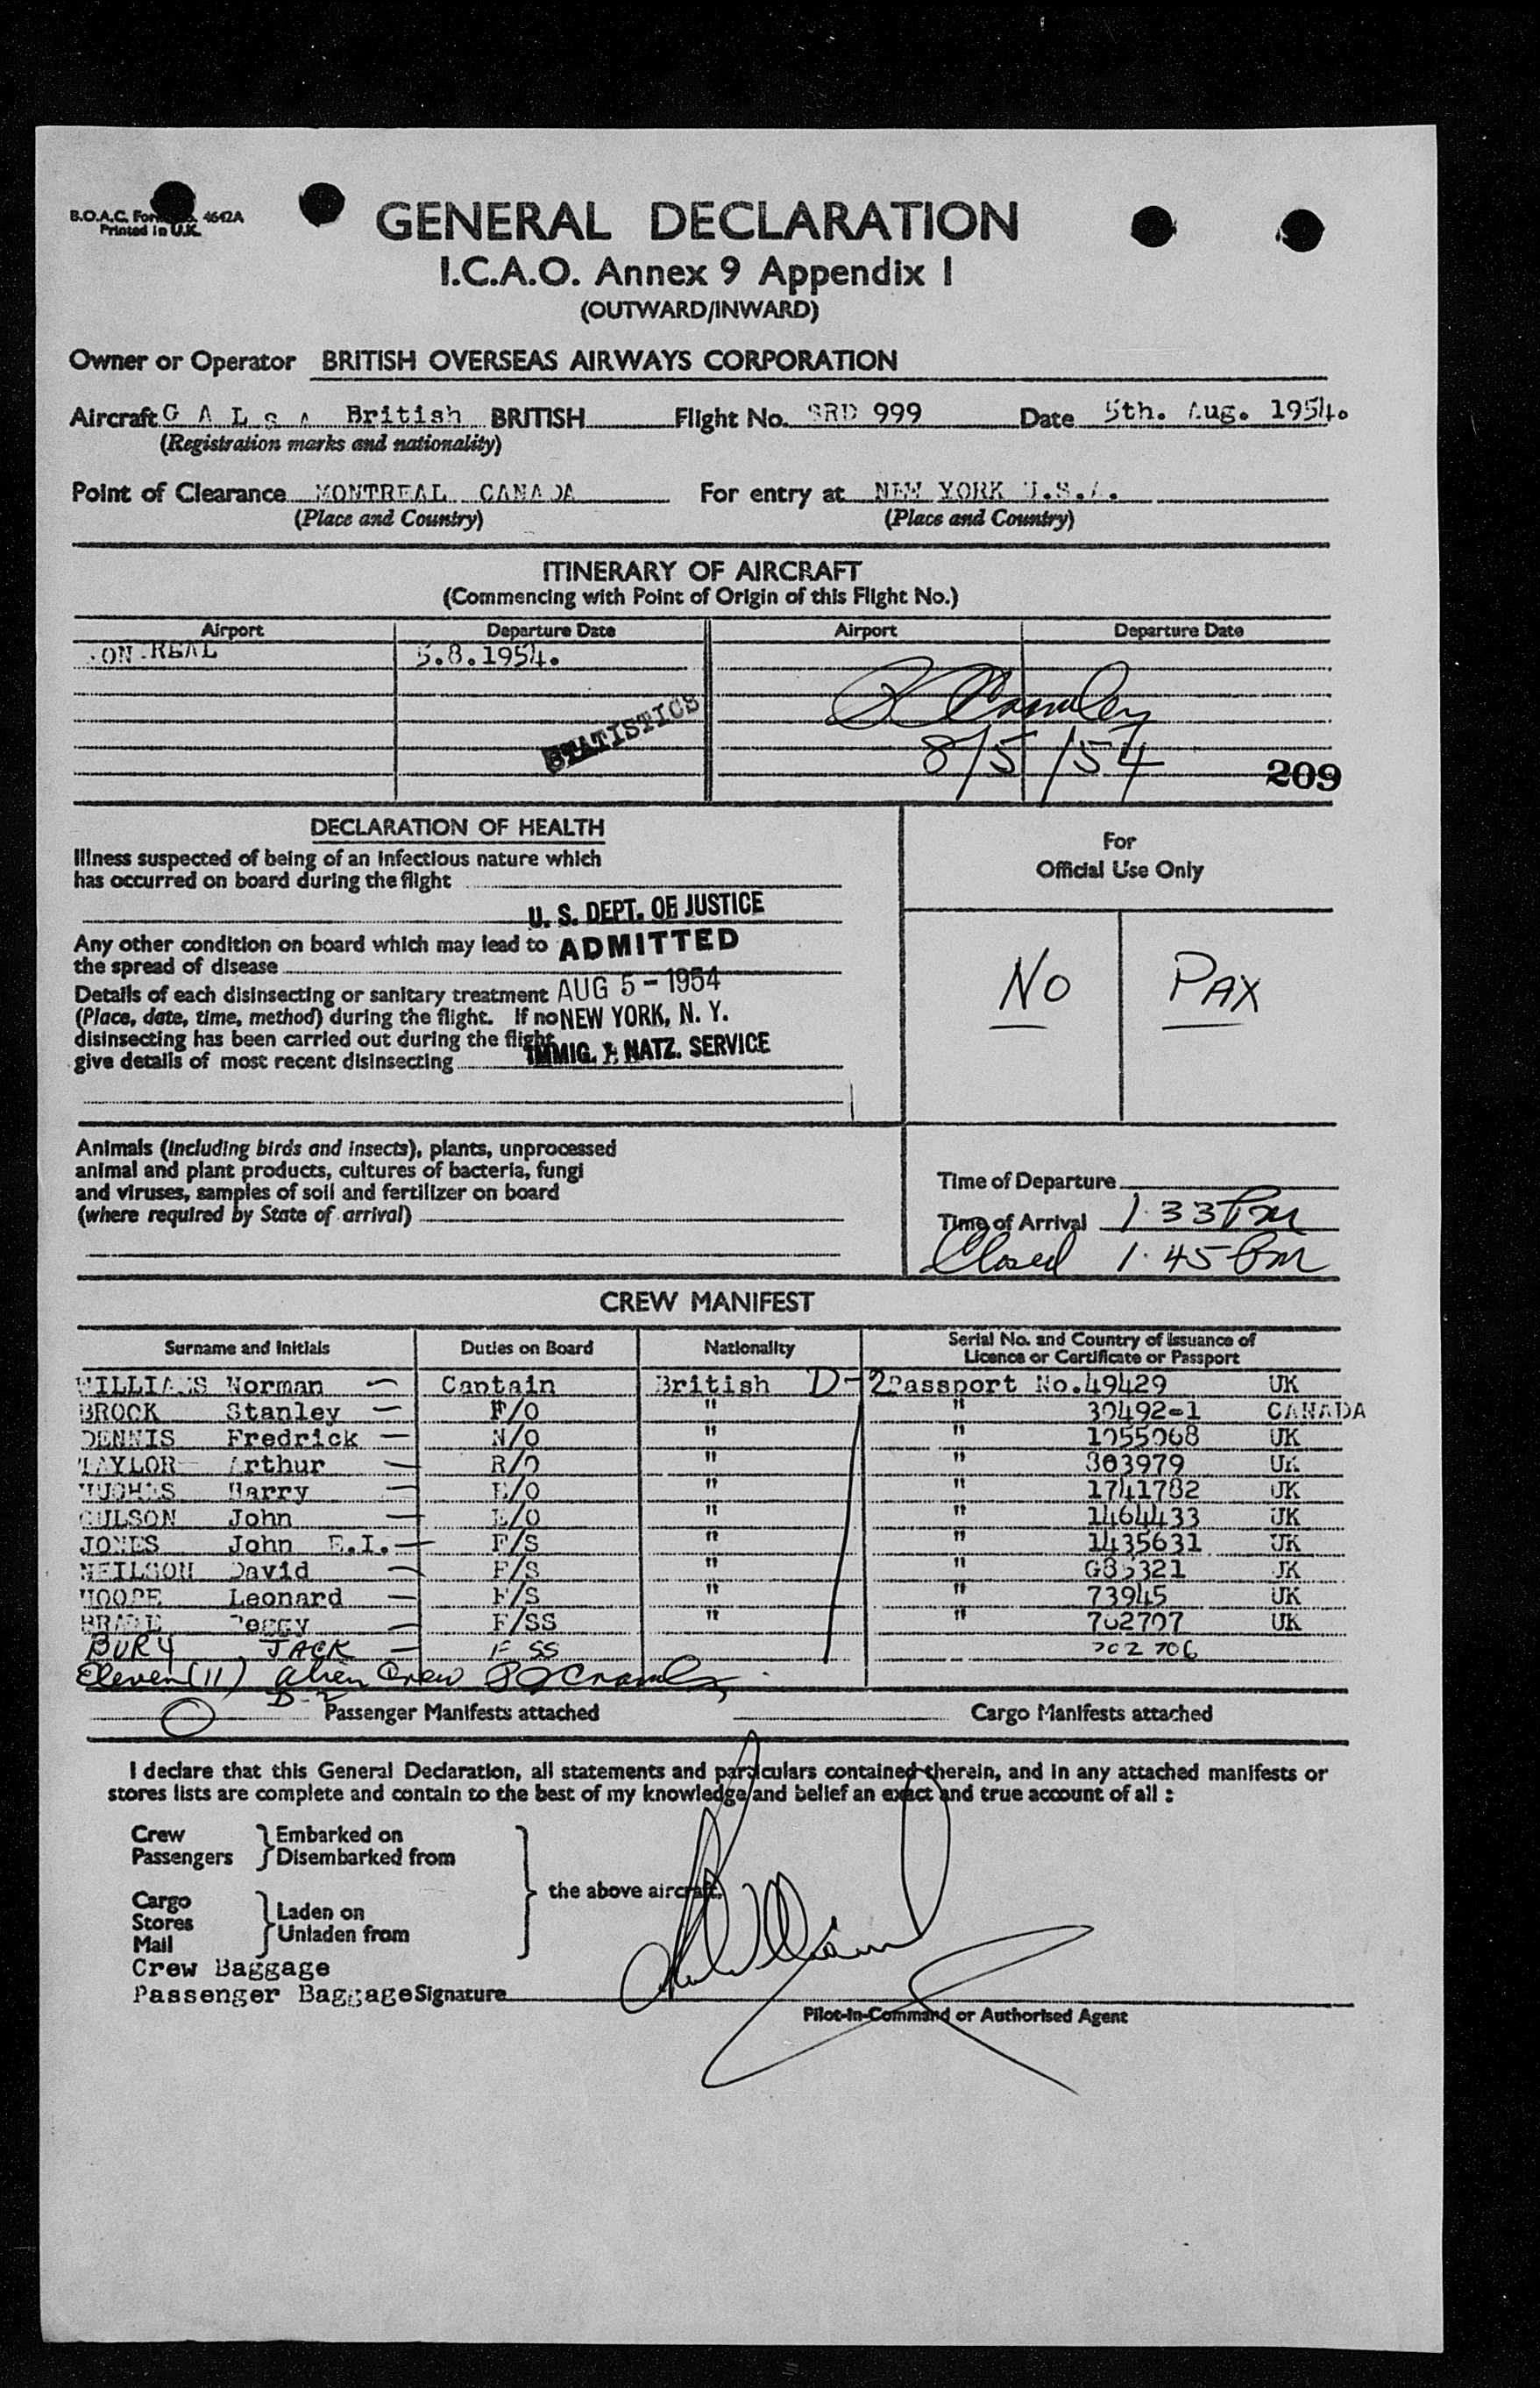 B.O.A.C. Form 4642A
Printed in U.K.
GENERAL DECLARATION
I.C.A.O. Annex 9 Appendix I
(OUTWARD/INWARD)
Owner or Operator BRITISH OVERSEAS AIRWAYS CORPORATION
Aircraft G A L S A British BRITISH Flight No. SRD 999 Date 5th. Aug. 1954.
(Registration marks and nationality)
Point of Clearance MONTREAL CANADA For entry at NEW YORK U.S.A.
(Place and Country) (Place and Country)
ITINERARY OF AIRCRAFT
(Commencing with Point of Origin of this Flight No.)
Airport Departure Date Airport Departure Date
MONTREAL 5.8.1954.
STATISTICS
8/5/54
209
DECLARATION OF HEALTH
Illness suspected of being of an infectious nature which
has occurred on board during the flight
U. S. DEPT. OF JUSTICE
Any other condition on board which may lead to ADMITTED
the spread of disease
Details of each disinsecting or sanitary treatment AUG 5 - 1954
(Place, date, time, method) during the flight. If no NEW YORK, N. Y.
disinsecting has been carried out during the flight
give details of most recent disinsecting IMMIG. & NATZ. SERVICE
For
Official Use Only
NO PAX
Animals (including birds and insects), plants, unprocessed
animal and plant products, cultures of bacteria, fungi
and viruses, samples of soil and fertilizer on board
(where required by State of arrival)
Time of Departure
Time of Arrival 1.33 Pm
Closed 1.45 Pm
CREW MANIFEST
Surname and Initials Duties on Board Nationality Serial No. and Country of Issuance of
Licence or Certificate or Passport
WILLIAMS Norman — Captain British D-2 Passport No. 49429 UK
BROCK Stanley — F/O " " 30492-1 CANADA
DENNIS Fredrick — N/O " " 1055068 UK
TAYLOR Arthur — R/O " " 303979 UK
HUGHES Harry — E/O " " 1741782 UK
John — E/O " " 1464433 UK
JONES John E.I. — F/S " " 1435631 UK
NEILSON David — F/S " " UK
MOORE Leonard — F/S " " 73945 UK
Peggy — F/SS " " 702707 UK
BURY JACK — F SS 702706
Eleven (11) Alien Crew
D-2
O Passenger Manifests attached Cargo Manifests attached
I declare that this General Declaration, all statements and particulars contained therein, and in any attached manifests or
stores lists are complete and contain to the best of my knowledge and belief an exact and true account of all :
Crew Embarked on
Passengers Disembarked from
the above aircraft.
Cargo
Stores Laden on
Mail Unladen from
Crew Baggage
Passenger Baggage Signature
Pilot-in-Command or Authorised Agent